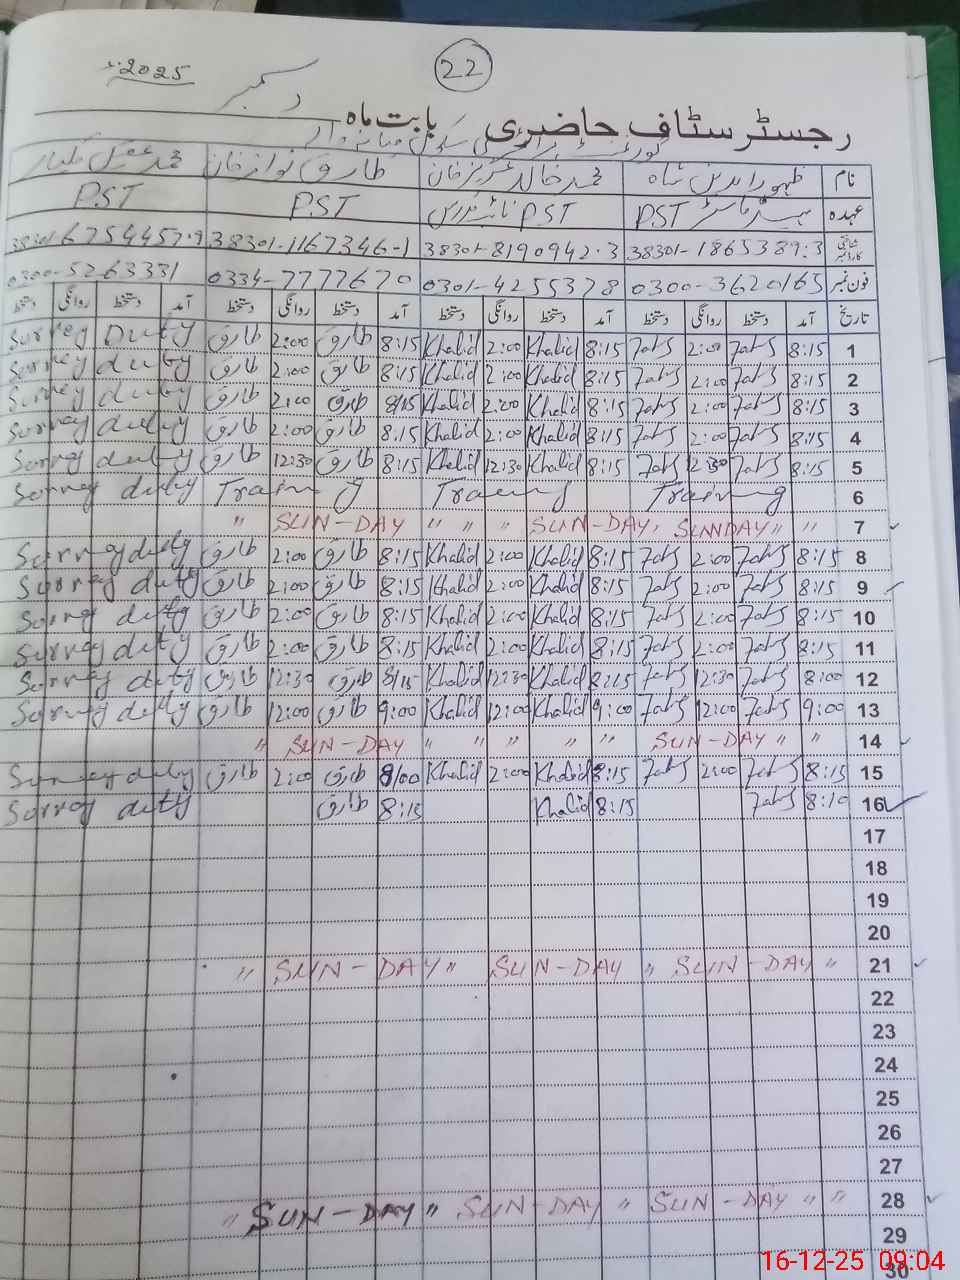 22
دسمبر 2025ء
رجسٹر سٹاف حاضری بابت ماہ
نام ظہور الدین شاہ محمد خالد عزیز خان طارق نواز خان محمد عقیل
عہدہ ہیڈ ماسٹر PST PST PST PST
38301-1865389-3 38301-8190942-3 38301-1167346-1 38301-6754457-9
فون نمبر 0300-3620165 0301-4255378 0334-7777670 0300-5263331
تاریخ آمد دستخط روانگی دستخط آمد دستخط روانگی دستخط آمد دستخط روانگی دستخط آمد دستخط روانگی دستخط
1 8:15 2:00 8:15 Khalid 2:00 Khalid 8:15 طارق 2:00 طارق Survey Duty
2 8:15 2:00 8:15 Khalid 2:00 Khalid 8:15 طارق 2:00 طارق Survey duty
3 8:15 2:00 8:15 Khalid 2:00 Khalid 8/15 طارق 2:00 طارق Survey duty
4 8:15 2:00 8:15 Khalid 2:00 Khalid 8:15 طارق 2:00 طارق Survey duty
5 8:15 12:30 8:15 Khalid 12:30 Khalid 8:15 طارق 12:30 طارق Survey duty
6 Training Training Training Survey duty
7 " " SUNNDAY " SUN-DAY " " " SUN-DAY "
8 8:15 2:00 8:15 Khalid 2:00 Khalid 8:15 طارق 2:00 طارق Survey duty
9 8:15 2:00 8:15 Khalid 2:00 Khalid 8:15 طارق 2:00 طارق Survey duty
10 8:15 2:00 8:15 Khalid 2:00 Khalid 8:15 طارق 2:00 طارق Survey duty
11 8:15 2:00 8:15 Khalid 2:00 Khalid 8:15 طارق 2:00 طارق Survey duty
12 8:00 12:30 8:15 Khalid 12:30 Khalid 8/15 طارق 12:30 طارق Survey duty
13 9:00 12:00 9:00 Khalid 12:00 Khalid 9:00 طارق 12:00 طارق Survey duty
14 " " SUN-DAY " " " " " SUN-DAY "
15 8:15 2:00 8:15 Khalid 2:00 Khalid 8/00 طارق 2:00 طارق Survey duty
16 8:10 8:15 Khalid 8:15 طارق Survey duty
17
18
19
20
21 " SUN-DAY " SUN-DAY " SUN-DAY "
22
23
24
25
26
27
28 " " SUN-DAY " SUN-DAY " SUN-DAY "
29
30
16-12-25 09:04